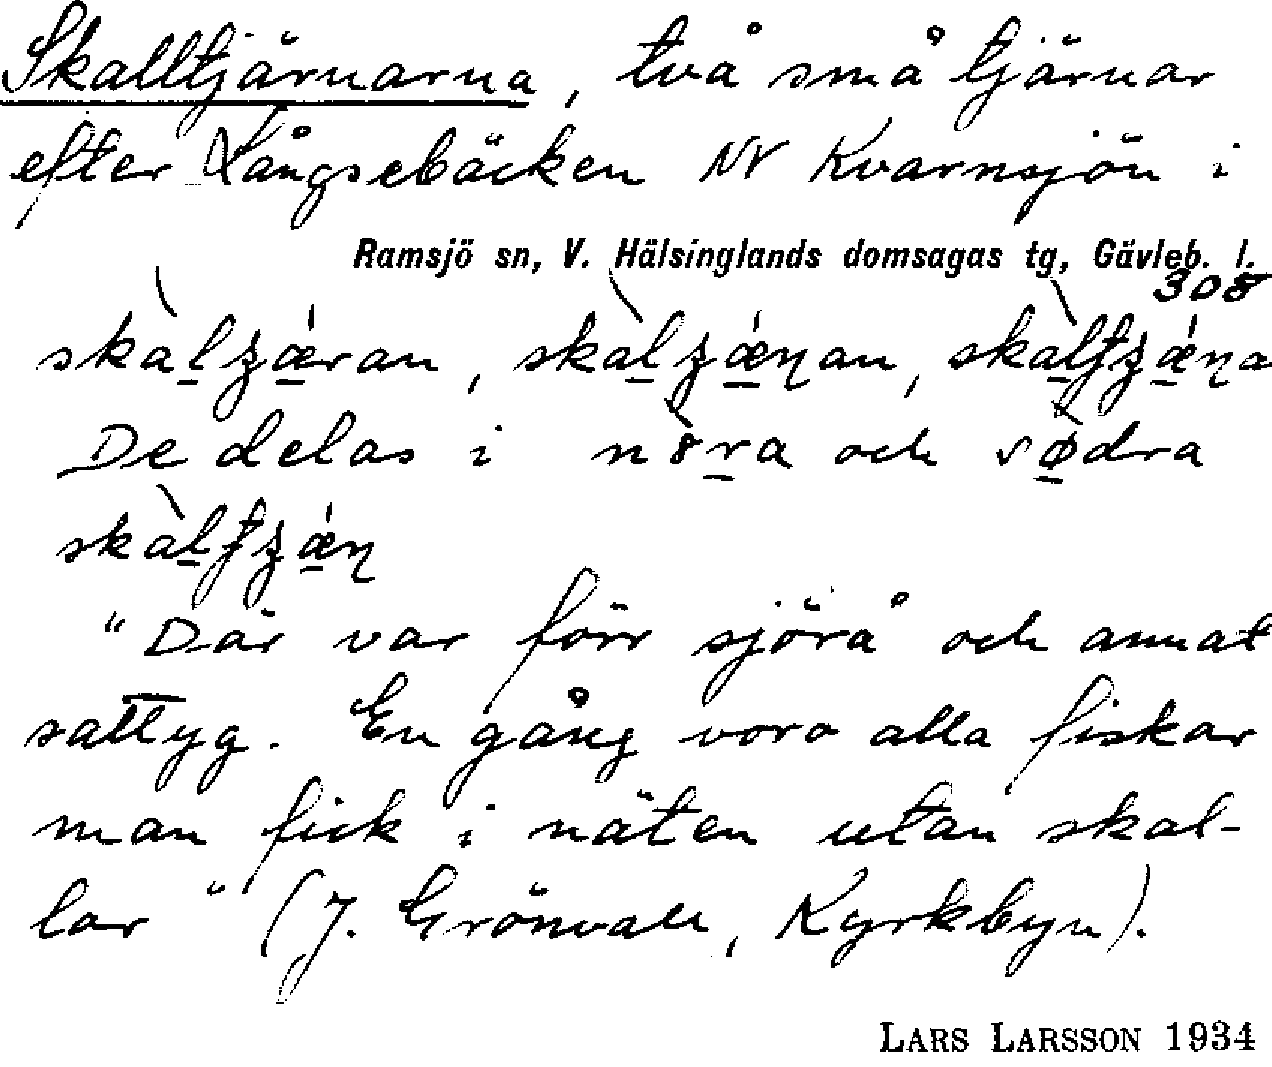 Skalltjärnarna, två små tjärnar
efter Långsebäcken NV Kvarnsjön i
Ramsjö sn, V. Hälsinglands domsagas tg, Gävleb. l.
308
De delas i nòra och södra
"Där var förr sjörå och annat
sattyg. En gång voro alla fiskar
man fick i näten utan skal-
lar" (J. Grönvall, Kyrkbyn).
LARS LARSSON 1934